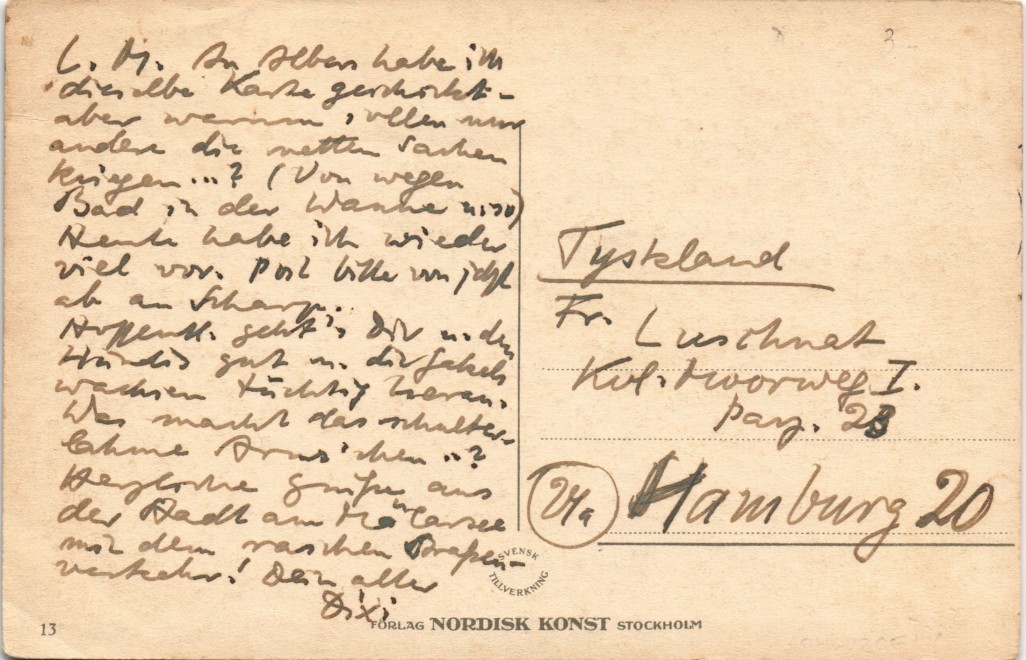 L. M. An Albers habe ich
dieselbe Karte geschickt –
aber warum sollen nur
andere die netten Sachen
kriegen ...? (Von wegen
Bad in der Wanne u. so)
Heute habe ich wieder
viel vor. Post bitte von jetzt
ab an Scharp...
Hoffentl. geht's Dir u. den
Hundis gut u. die
wachsen tüchtig heran.
Was macht das schulter-
lahme Ärmchen ..?
Herzliche Grüße aus
der Stadt am Mälarsee
mit dem raschen Straßen-
verkehr! Dein alter
Dixi
Tyskland
Fr. Luschnat
Kol. Moorweg I.
Parz. 23
24a Hamburg 20
SVENSK TILLVERKNING
13
FÖRLAG NORDISK KONST STOCKHOLM